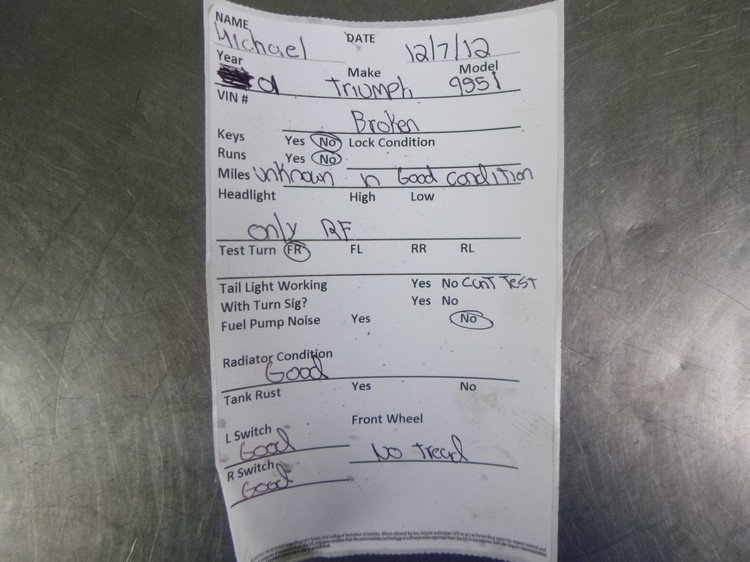 NAME
Michael DATE 12/7/12
Year Make Model
Triumph 995i
VIN #
Broken
Keys Yes No Lock Condition
Runs Yes No
Miles unknown in Good condition
Headlight High Low
only RF
Test Turn FR FL RR RL
Tail Light Working Yes No CanT TEST
With Turn Sig? Yes No
Fuel Pump Noise Yes No
Radiator Condition
Good
Tank Rust Yes No
Front Wheel
L Switch
Good No Tread
R Switch
Good